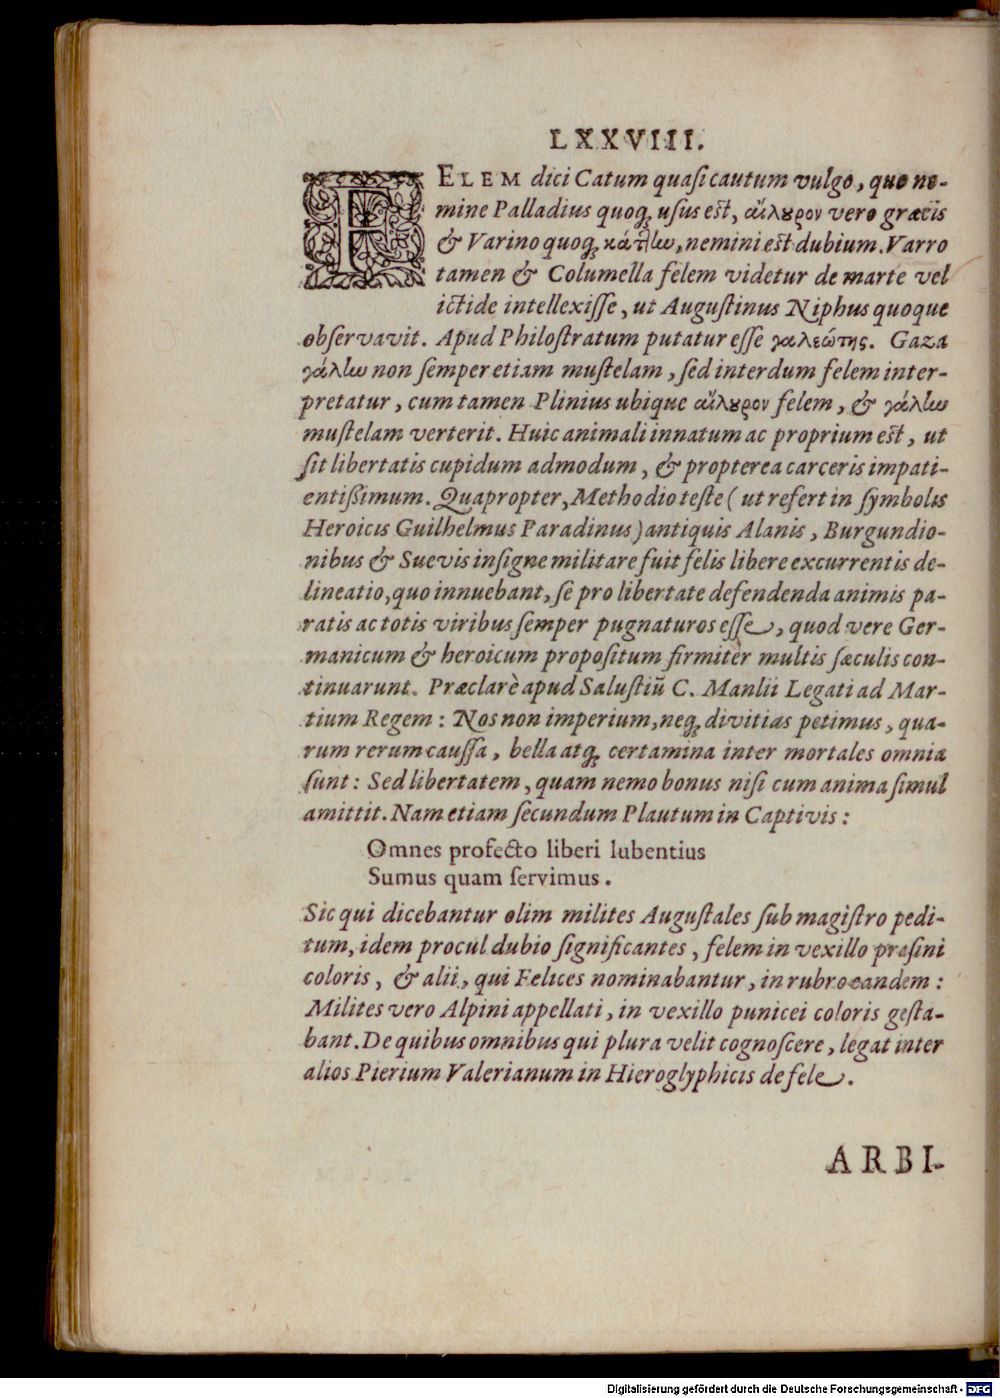 LXXVIII.
FELEM dici Catum quasi cautum vulgo, quo no-
mine Palladius quoq; usus est, αἴλουρον vero græcis
& Varino quoq; κάτἰω, nemini est dubium. Varro
tamen & Columella felem videtur de marte vel
ictide intellexisse, ut Augustinus Niphus quoque
observavit. Apud Philostratum putatur esse γαλεώτης. Gaza
γάλἰω non semper etiam mustelam, sed interdum felem inter-
pretatur, cum tamen Plinius ubique αἴλουρον felem, & γάλἰω
mustelam verterit. Huic animali innatum ac proprium est, ut
sit libertatis cupidum admodum, & propterea carceris impati-
entißimum. Quapropter, Methodio teste ( ut refert in symbolis
Heroicis Guilhelmus Paradinus) antiquis Alanis, Burgundio-
nibus & Suevis insigne militare fuit felis libere excurrentis de-
lineatio, quo innuebant, se pro libertate defendenda animis pa-
ratis ac totis viribus semper pugnaturos esse, quod vere Ger-
manicum & heroicum propositum firmiter multis sæculis con-
tinuarunt. Præclarè apud Salustiū C. Manlii Legati ad Mar-
tium Regem: Nos non imperium, neq; divitias petimus, qua-
rum rerum caussa, bella atq; certamina inter mortales omnia
sunt: Sed libertatem, quam nemo bonus nisi cum anima simul
amittit. Nam etiam secundum Plautum in Captivis:
Omnes profecto liberi lubentius
Sumus quam servimus.
Sic qui dicebantur olim milites Augustales sub magistro pedi-
tum, idem procul dubio significantes, felem in vexillo prasini
coloris, & alii, qui Felices nominabantur, in rubro eandem:
Milites vero Alpini appellati, in vexillo punicei coloris gesta-
bant. De quibus omnibus qui plura velit cognoscere, legat inter
alios Pierium Valerianum in Hieroglyphicis de fele.
ARBI-
Digitalisierung gefördert durch die Deutsche Forschungsgemeinschaft - DFG